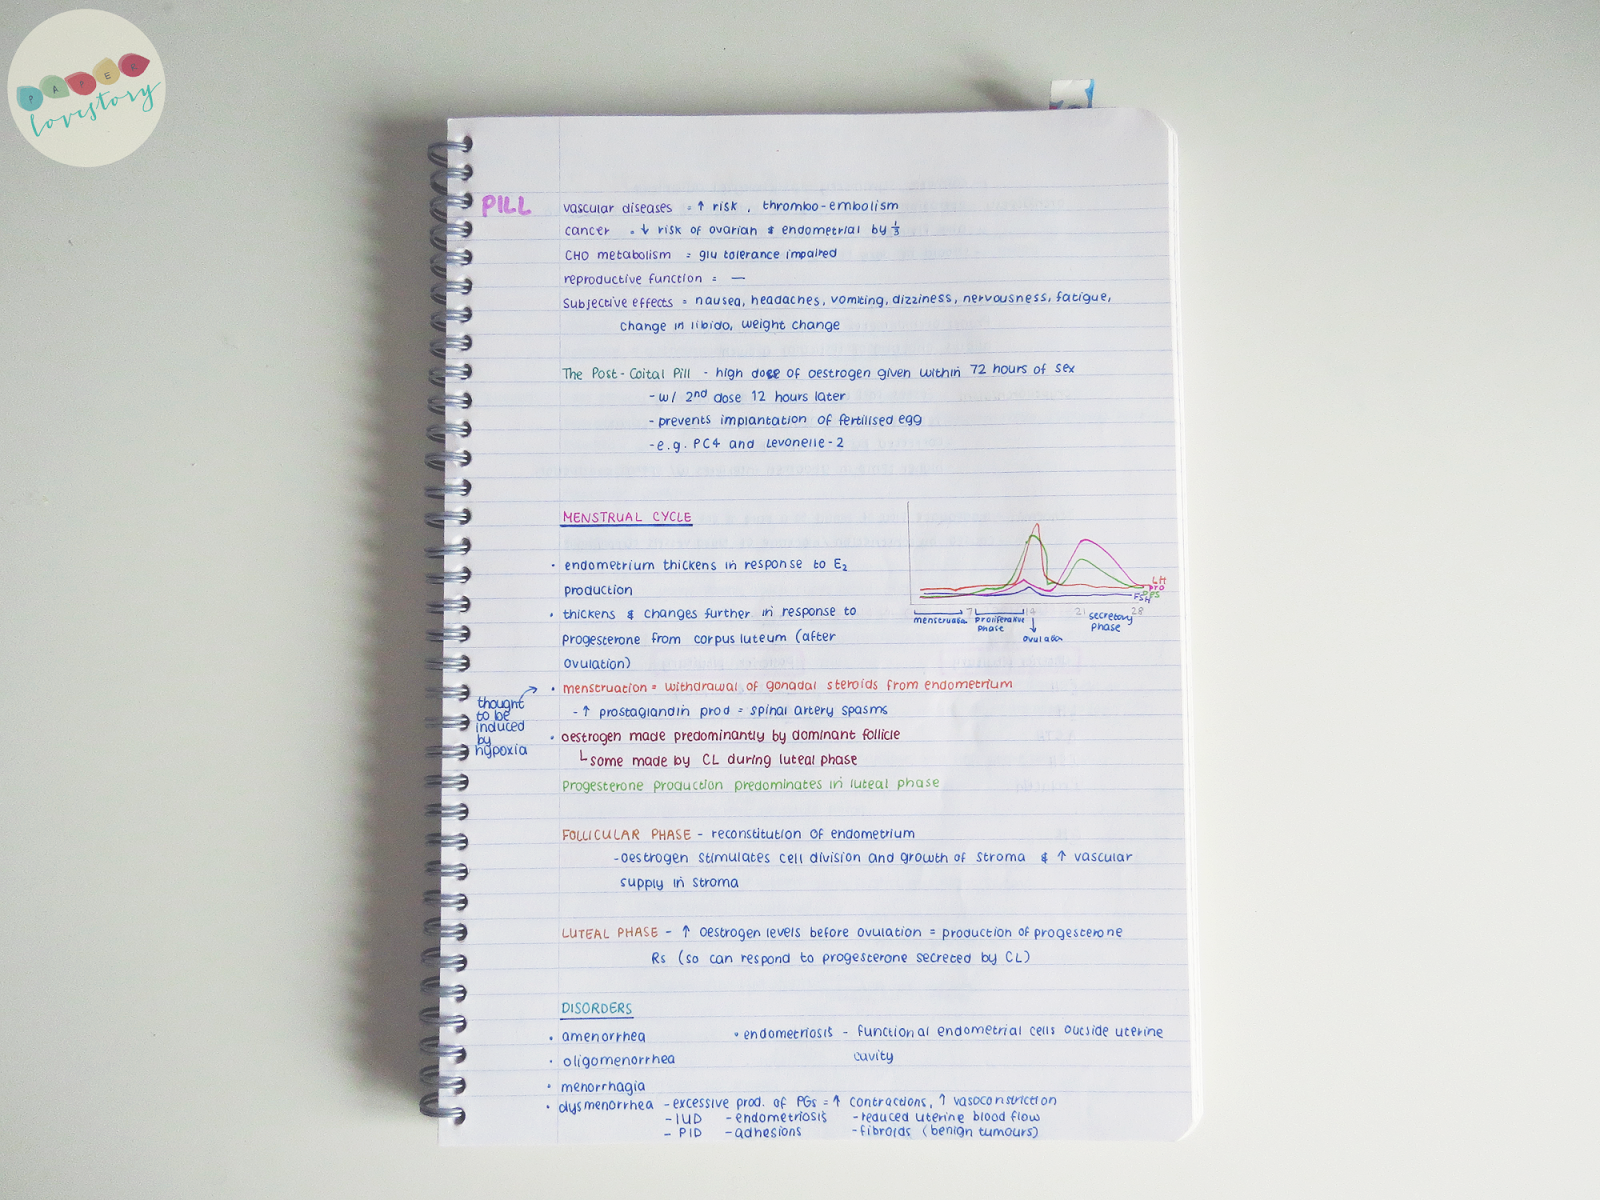 PAPER
lovestory
PILL
vascular diseases = ↑ risk, thrombo-embolism
cancer = ↓ risk of ovarian & endometrial by ⅓
CHO metabolism = glu tolerance impaired
reproductive function = —
Subjective effects = nausea, headaches, vomiting, dizziness, nervousness, fatigue,
change in libido, weight change
The Post-Coital Pill - high dose of oestrogen given within 72 hours of sex
- w/ 2nd dose 12 hours later
- prevents implantation of fertilised egg
- e.g. PC4 and Levonelle-2
MENSTRUAL CYCLE
• endometrium thickens in response to E₂
production
• thickens & changes further in response to
progesterone from corpus luteum (after
ovulation)
LH
pro
oes
FSH
7 14 21 28
menstruation
proliferative
phase
↓
ovulation
secretory
phase
• menstruation = withdrawal of gonadal steroids from endometrium
thought
to be
induced
by
hypoxia
- ↑ prostaglandin prod = spinal artery spasms
• oestrogen made predominantly by dominant follicle
└ some made by CL during luteal phase
Progesterone production predominates in luteal phase
FOLLICULAR PHASE - reconstitution of endometrium
- oestrogen stimulates cell division and growth of stroma & ↑ vascular
supply in stroma
LUTEAL PHASE - ↑ oestrogen levels before ovulation = production of progesterone
Rs (so can respond to progesterone secreted by CL)
DISORDERS
• amenorrhea
• oligomenorrhea
• menorrhagia
• endometriosis - functional endometrial cells outside uterine
cavity
• dysmenorrhea - excessive prod. of PGs = ↑ contractions, ↑ vasoconstriction
- IUD - endometriosis - reduced uterine blood flow
- PID - adhesions - fibroids (benign tumours)